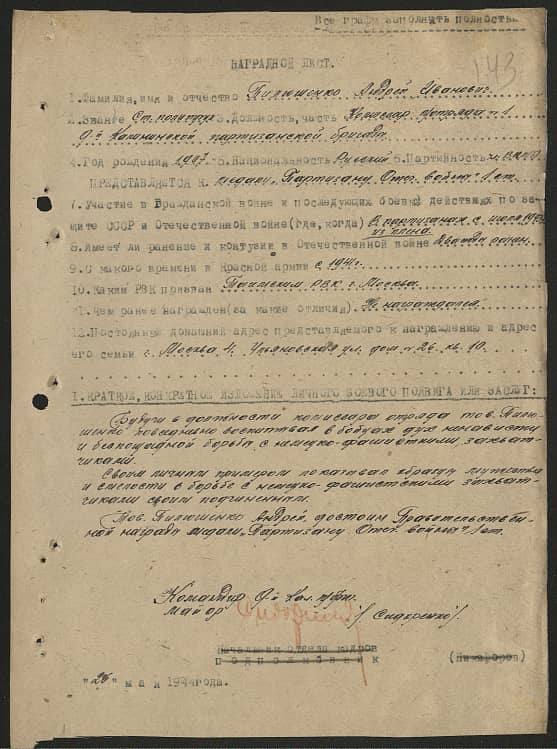 Все графы заполнить полностью.
143
НАГРАДНОЙ ЛИСТ.
1. Фамилия, имя и отчество Пилюшенко Андрей Иванович
2. Звание Ст. политрук 3. Должность, часть Комиссар отряда № 1
9-й Калининской партизанской бригады
4. Год рождения 1907. 5. Национальность Русский 6. Партийность чл. ВКП(б)
ПРЕДСТАВЛЯЕТСЯ К медали „Партизану Отеч. войны" 1 ст.
7. Участие в Гражданской войне и последующих боевых действиях по за-
щите СССР и Отечественной войне (где, когда) В партизанах с июля
из плена.
8. Имеет ли ранение и контузии в Отечественной войне Дважды ранен.
9. С какого времени в Красной армии с 1941г.
10. Каким РВК призван РВК г. Москва.
11. Чем ранее награжден (за какие отличия) Не награждался.
12. Постоянный домашний адрес представляемого к награждению и адрес
его семьи г. Москва 4. Ульяновская ул. дом № 26. кв. 10.
1. КРАТКОЕ, КОНКРЕТНОЕ ИЗЛОЖЕНИЕ ЛИЧНОГО БОЕВОГО ПОДВИГА ИЛИ ЗАСЛУГ:
Будучи в должности комиссара отряда тов. Пилю-
шенко повседневно воспитывал в бойцах дух ненависти
и беспощадной борьбы с немецко-фашистскими захват-
чиками.
Своим личным примером показывал образцы мужества
и смелости в борьбе с немецко-фашистскими захват-
чиками своим подчиненным.
Тов. Пилюшенко Андрей, достоин Правительствен-
ной награды медали „Партизану Отеч. войны" 1 ст.
Командир 9-й Кал. п/бр.
майор /Сидоренко/.
Начальник отдела кадров
подполковник (Никифоров)
"26" мая 1944 года.